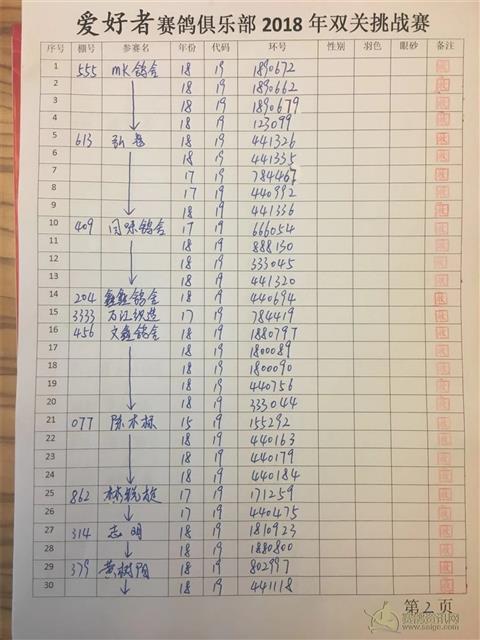 爱好者赛鸽俱乐部 2018 年双关挑战赛
序号 棚号 参赛名 年份 代码 环号 性别 羽色 眼砂 备注
1 555 MK鸽舍 18 19 1890672
2 18 19 1890662
3 18 19 1890679
4 18 19 123099
5 613 18 19 441326
6 18 19 441335
7 17 19 784467
8 17 19 440992
9 18 19 441336
10 409 回味鸽舍 17 19 666054
11 18 19 888130
12 18 19 333045
13 18 19 441320
14 204 鑫鑫鸽舍 18 19 440694
15 3333 万江织造 17 19 784419
16 456 文鑫鸽舍 18 19 1880797
17 18 19 1800089
18 18 19 1800090
19 18 19 440756
20 18 19 333044
21 077 陈木标 15 19 155292
22 18 19 440163
23 18 19 440179
24 18 19 440184
25 862 林 17 19 171259
26 17 19 440475
27 314 志明 18 19 1810923
28 18 19 1880800
29 379 黄树阳 18 19 802997
30 18 19 441118
第 2 页
赛鸽资讯网
www.saige.com